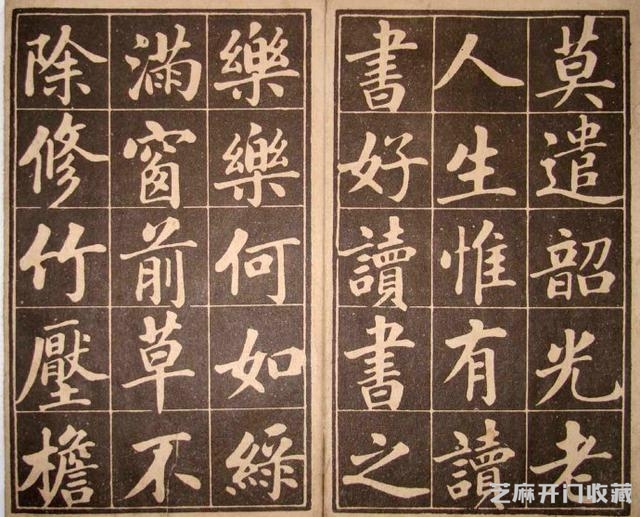 莫遣韶光老
人生惟有讀
書好讀書之
樂樂何如綠
滿窗前草不
除修竹壓檐
芝麻开门收藏